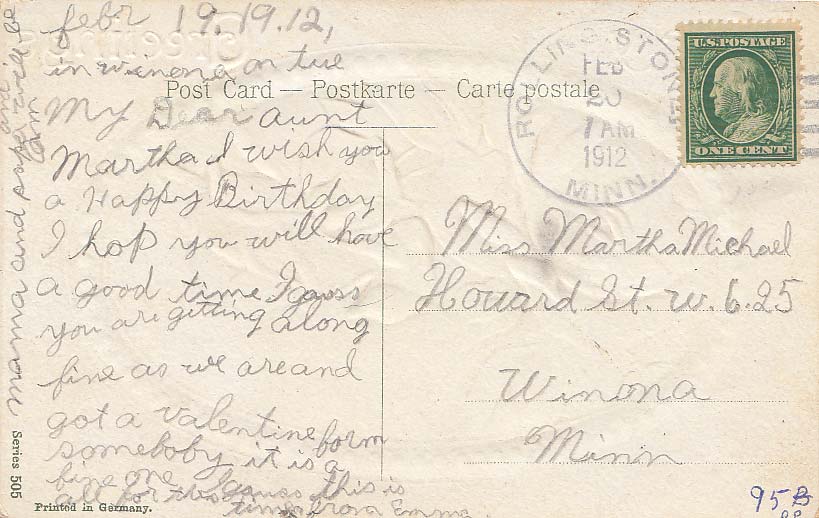 febr 19.19.12,
My Dear aunt
Martha I wish you
a Happy Birthday
I hop you will have
a good time I gauss
you are getting along
fine as we are and
got a valentine form
somebody it is a
fine one I gauss this is
all for this time from Emma
mama and papa will be
in winona on tue
Post Card — Postkarte — Carte postale
ROLLINGSTONE
FEB
20
7 AM
1912
MINN.
U.S. POSTAGE
ONE CENT
Miss Martha Michael
Howard St. w. 625
Winona
Minn
Series 505
Printed in Germany.
Greetings